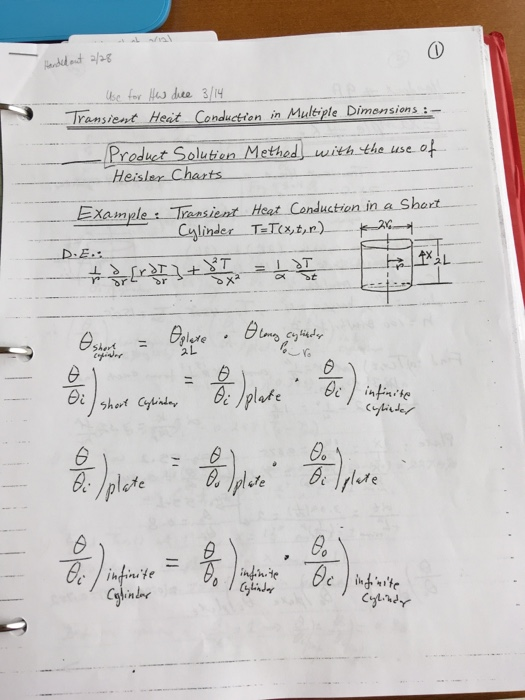 Handed out 2/28
①
Use for HW due 3/14
Transient Heat Conduction in Multiple Dimensions :-
Product Solution Method with the use of
Heisler Charts
Example : Transient Heat Conduction in a Short
Cylinder T=T(x,t,r)
2r₀
D.E.:
1/r ∂/∂r [r ∂T/∂r] + ∂²T/∂x² = 1/α ∂T/∂t
r x 2L
θ short cylinder = θ plate 2L · θ long cylinder r₀
θ/θi ) short cylinder = θ/θi ) plate · θ/θi ) infinite cylinder
θ/θi ) plate = θ/θ₀ ) plate · θ₀/θi ) plate
θ/θi ) infinite cylinder = θ/θ₀ ) infinite cylinder · θ₀/θi ) infinite cylinder